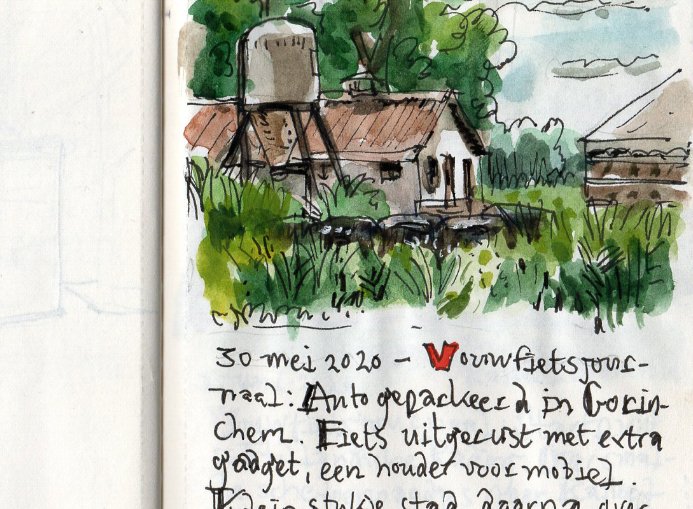 30 mei 2020 - Vouwfietsjour-
naal: Auto geparkeerd in Gorin-
chem. Fiets uitgerust met extra
gadget, een houder voor mobiel.
Klein stukje stad, daarna over